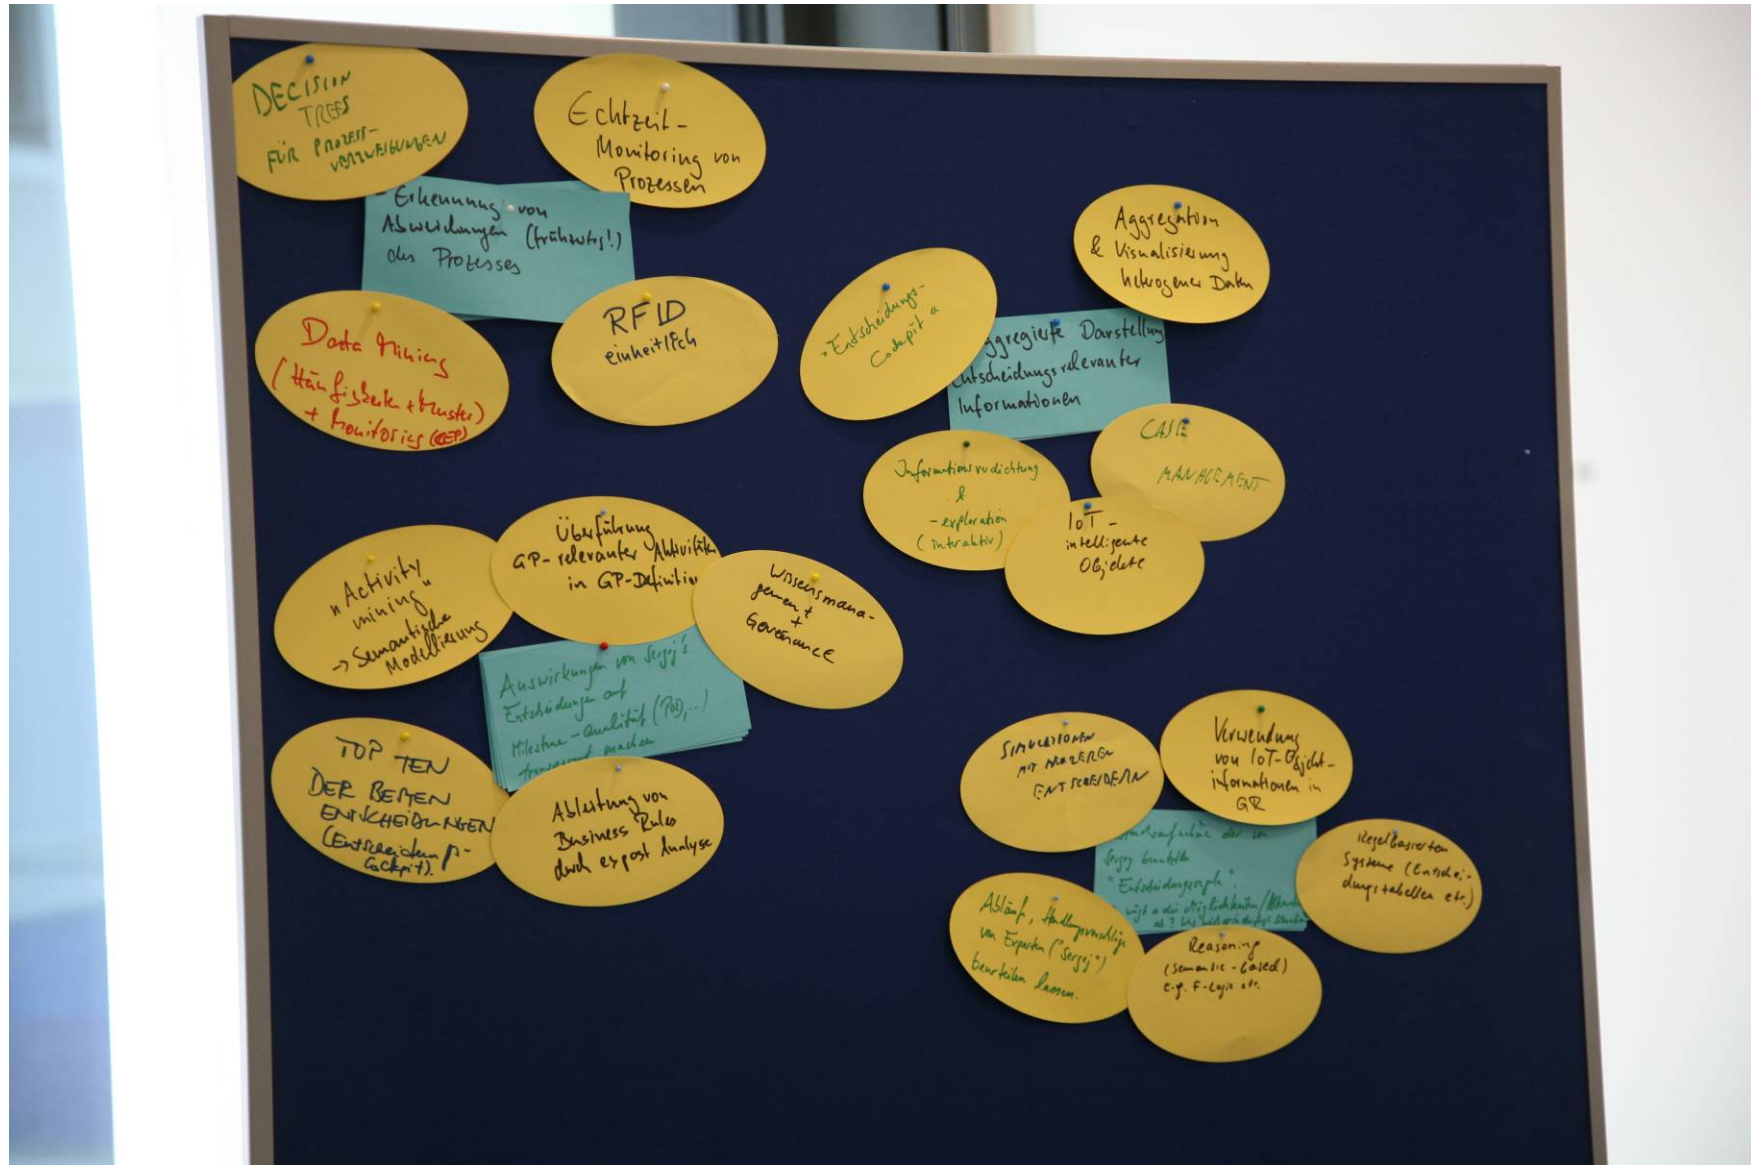 DECISION
TREES
FÜR PROZESS-
VERZWEIGUNGEN
Echtzeit-
Monitoring von
Prozessen
- Erkennung von
Abweichungen (frühzeitig!)
des Prozesses
Data Mining
(Häufigkeiten + Muster)
+ Monitoring (CEP)
RFID
einheitlich
Aggregation
& Visualisierung
heterogener Daten
"Entscheidungs-
Cockpit"
Aggregierte Darstellung
entscheidungsrelevanter
Informationen
CASE
MANAGEMENT
Informationsverdichtung
&
-exploration
(interaktiv)
IoT -
intelligente
Objekte
"Activity
mining"
-> Semantische
Modellierung
Überführung
GP-relevanter Aktivitäten
in GP-Definition
Wissensmana-
gement
+
Governance
Auswirkungen von Sergej's
Entscheidungen auf
Milestone-Qualität (POD,...)
transparent machen
TOP TEN
DER BESTEN
ENTSCHEIDUNGEN
(Entscheidungs-
cockpit).
Ableitung von
Business Rules
durch ex post Analyse
SIMULATIONEN
MIT
ENTSCHEIDERN
Verwendung
von IoT-Objekt-
informationen in
GR
der von
Sergej benutzten
"Entscheidungsregeln".
die Möglichkeiten
Regelbasierten
Systeme (Entschei-
dungstabellen etc.)
Abläufe, Handlungsvorschläge
von Experten ("Sergej")
beurteilen lassen.
Reasoning
(semantic-based)
e.g. F-Logic etc.